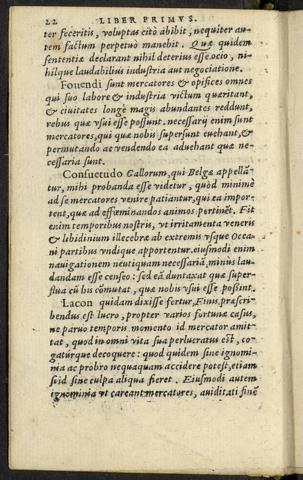 22 LIBER PRIMVS.
ter feceritis, voluptas citò abibit, nequiter au-
tem factum perpetuò manebit. Quæ quidem
sententia declarant nihil deterius esse ocio, ni-
hilque laudabilius industria aut negociatione.
Fouendi sunt mercatores & opifices omnes
qui suo labore & industria victum quæritant,
& ciuitates longè magis abundantes reddunt,
rebus quæ vsui esse possunt. necessarij enim sunt
mercatores, qui quæ nobis supersunt euehant, &
permutando ac vendendo ea aduehant quæ ne-
cessaria sunt.
Consuetudo Gallorum, qui Belgæ appellã-
tur, mihi probanda esse videtur, quòd minimè
ad se mercatores venire patiantur, qui ea impor-
tent, quæ ad effœminandos animos pertinẽt. Fit
enim temporibus nostris, vt irritamenta veneris
& libidinium illecebræ ab extremis vsque Ocea-
ni partibus vndique apportentur. eiusmodi enim
nauigationem neutiquam necessariã, minùs lau-
dandam esse censeo: sed eã duntaxat quæ super-
flua cũ his cõmutat, quæ nobis vsui esse possint.
Lacon quidam dixisse fertur, Eius præscri-
bendus est lucro, propter varios fortunæ casus,
ne paruo temporis momento id mercator amit-
tat, quod in omni vita sua perlucratus est, co-
gaturque decoquere: quod quidem sine ignomi-
nia ac probro nequaquam accidere potest, etiam
si id sine culpa aliqua fieret. Eiusmodi autem
ignominia vt careant mercatores, auiditati sinẽ